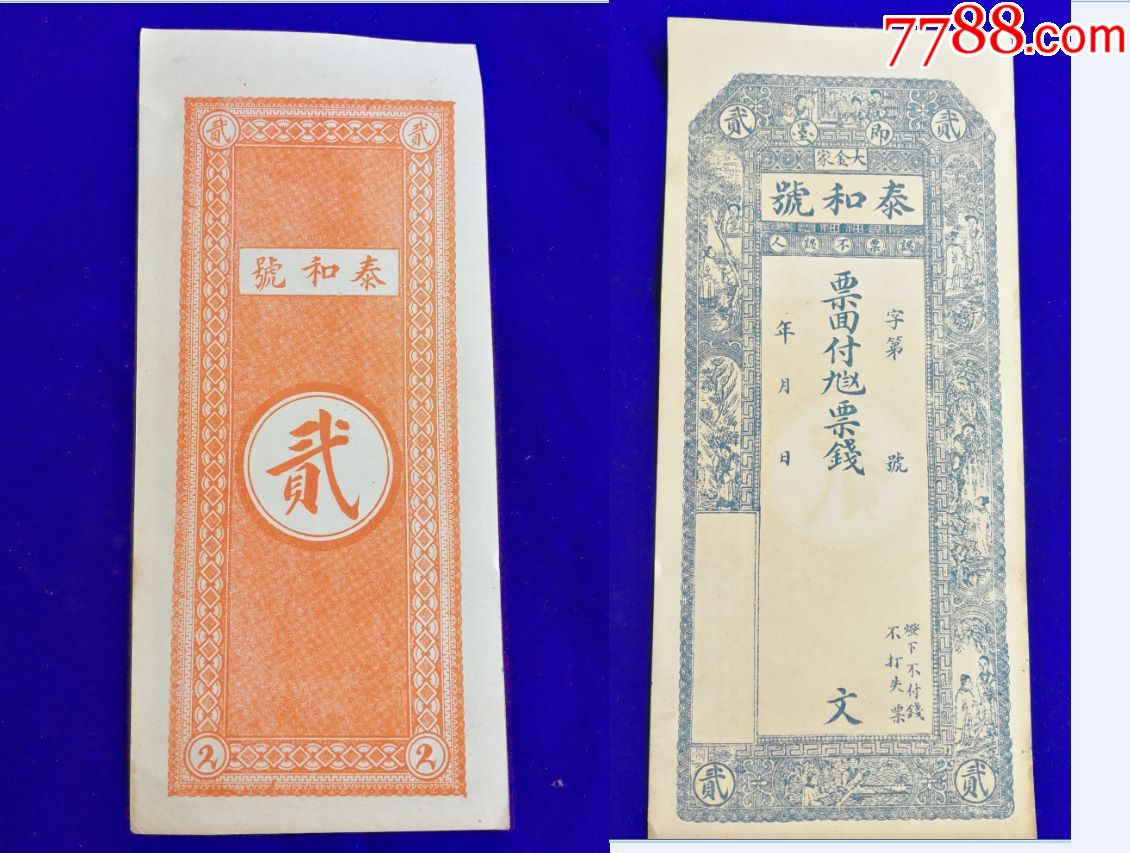 7788.com
貳 貳
泰和號
貳
2 2
貳 即墨 貳
大金家
泰和號
認票不認人
字第 號
票面付票錢 文
年 月 日
燈下不付錢
不打失票
貳 貳